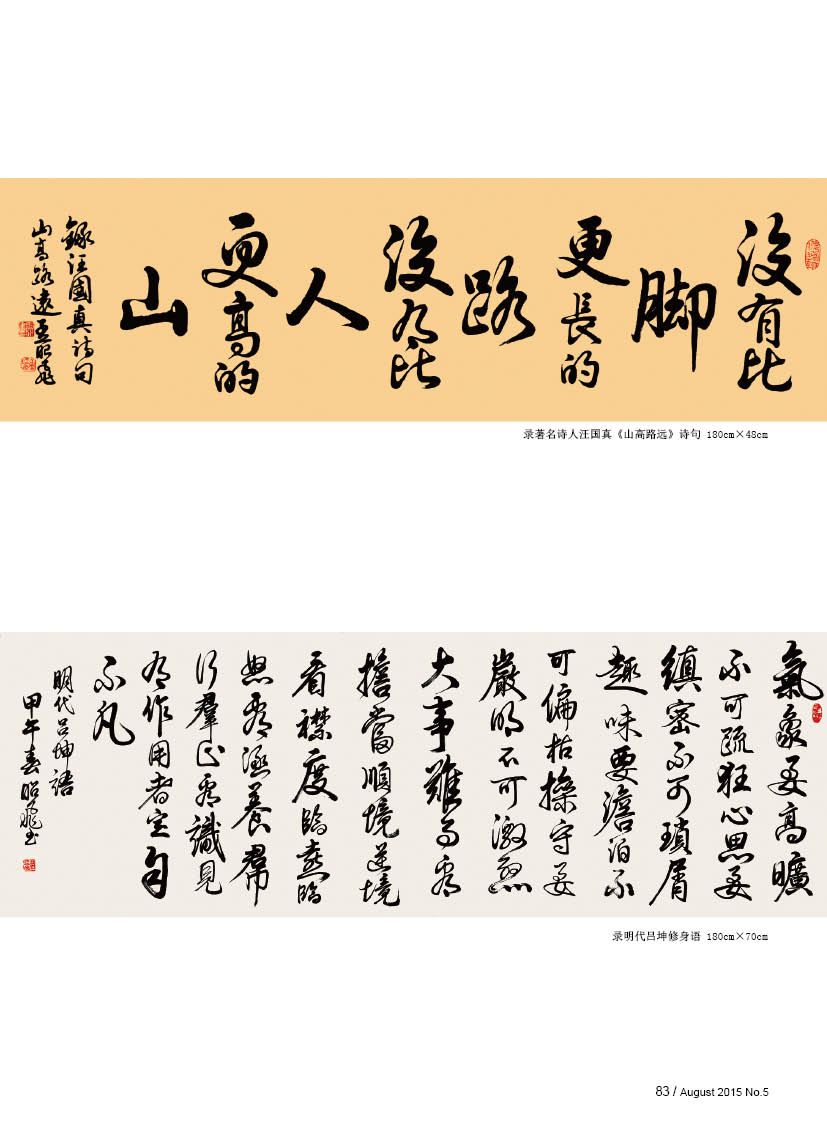 没有比
脚
更長的
路
没有比
人
更高的
山
録汪國真詩句
山高路遠 王昭飛
录著名诗人汪国真《山高路远》诗句 180cm×48cm
氣象要高曠
不可疏狂心思要
縝密不可瑣屑
趣味要澹泊不
可偏枯操守要
嚴明不可激烈
大事難事看
擔當順境逆境
看襟度臨喜臨
怒看涵養羣
行羣止看識見
有作用者定自
不凡
明代吕坤語
甲午春昭飛书
录明代吕坤修身语 180cm×70cm
83 / August 2015 No.5